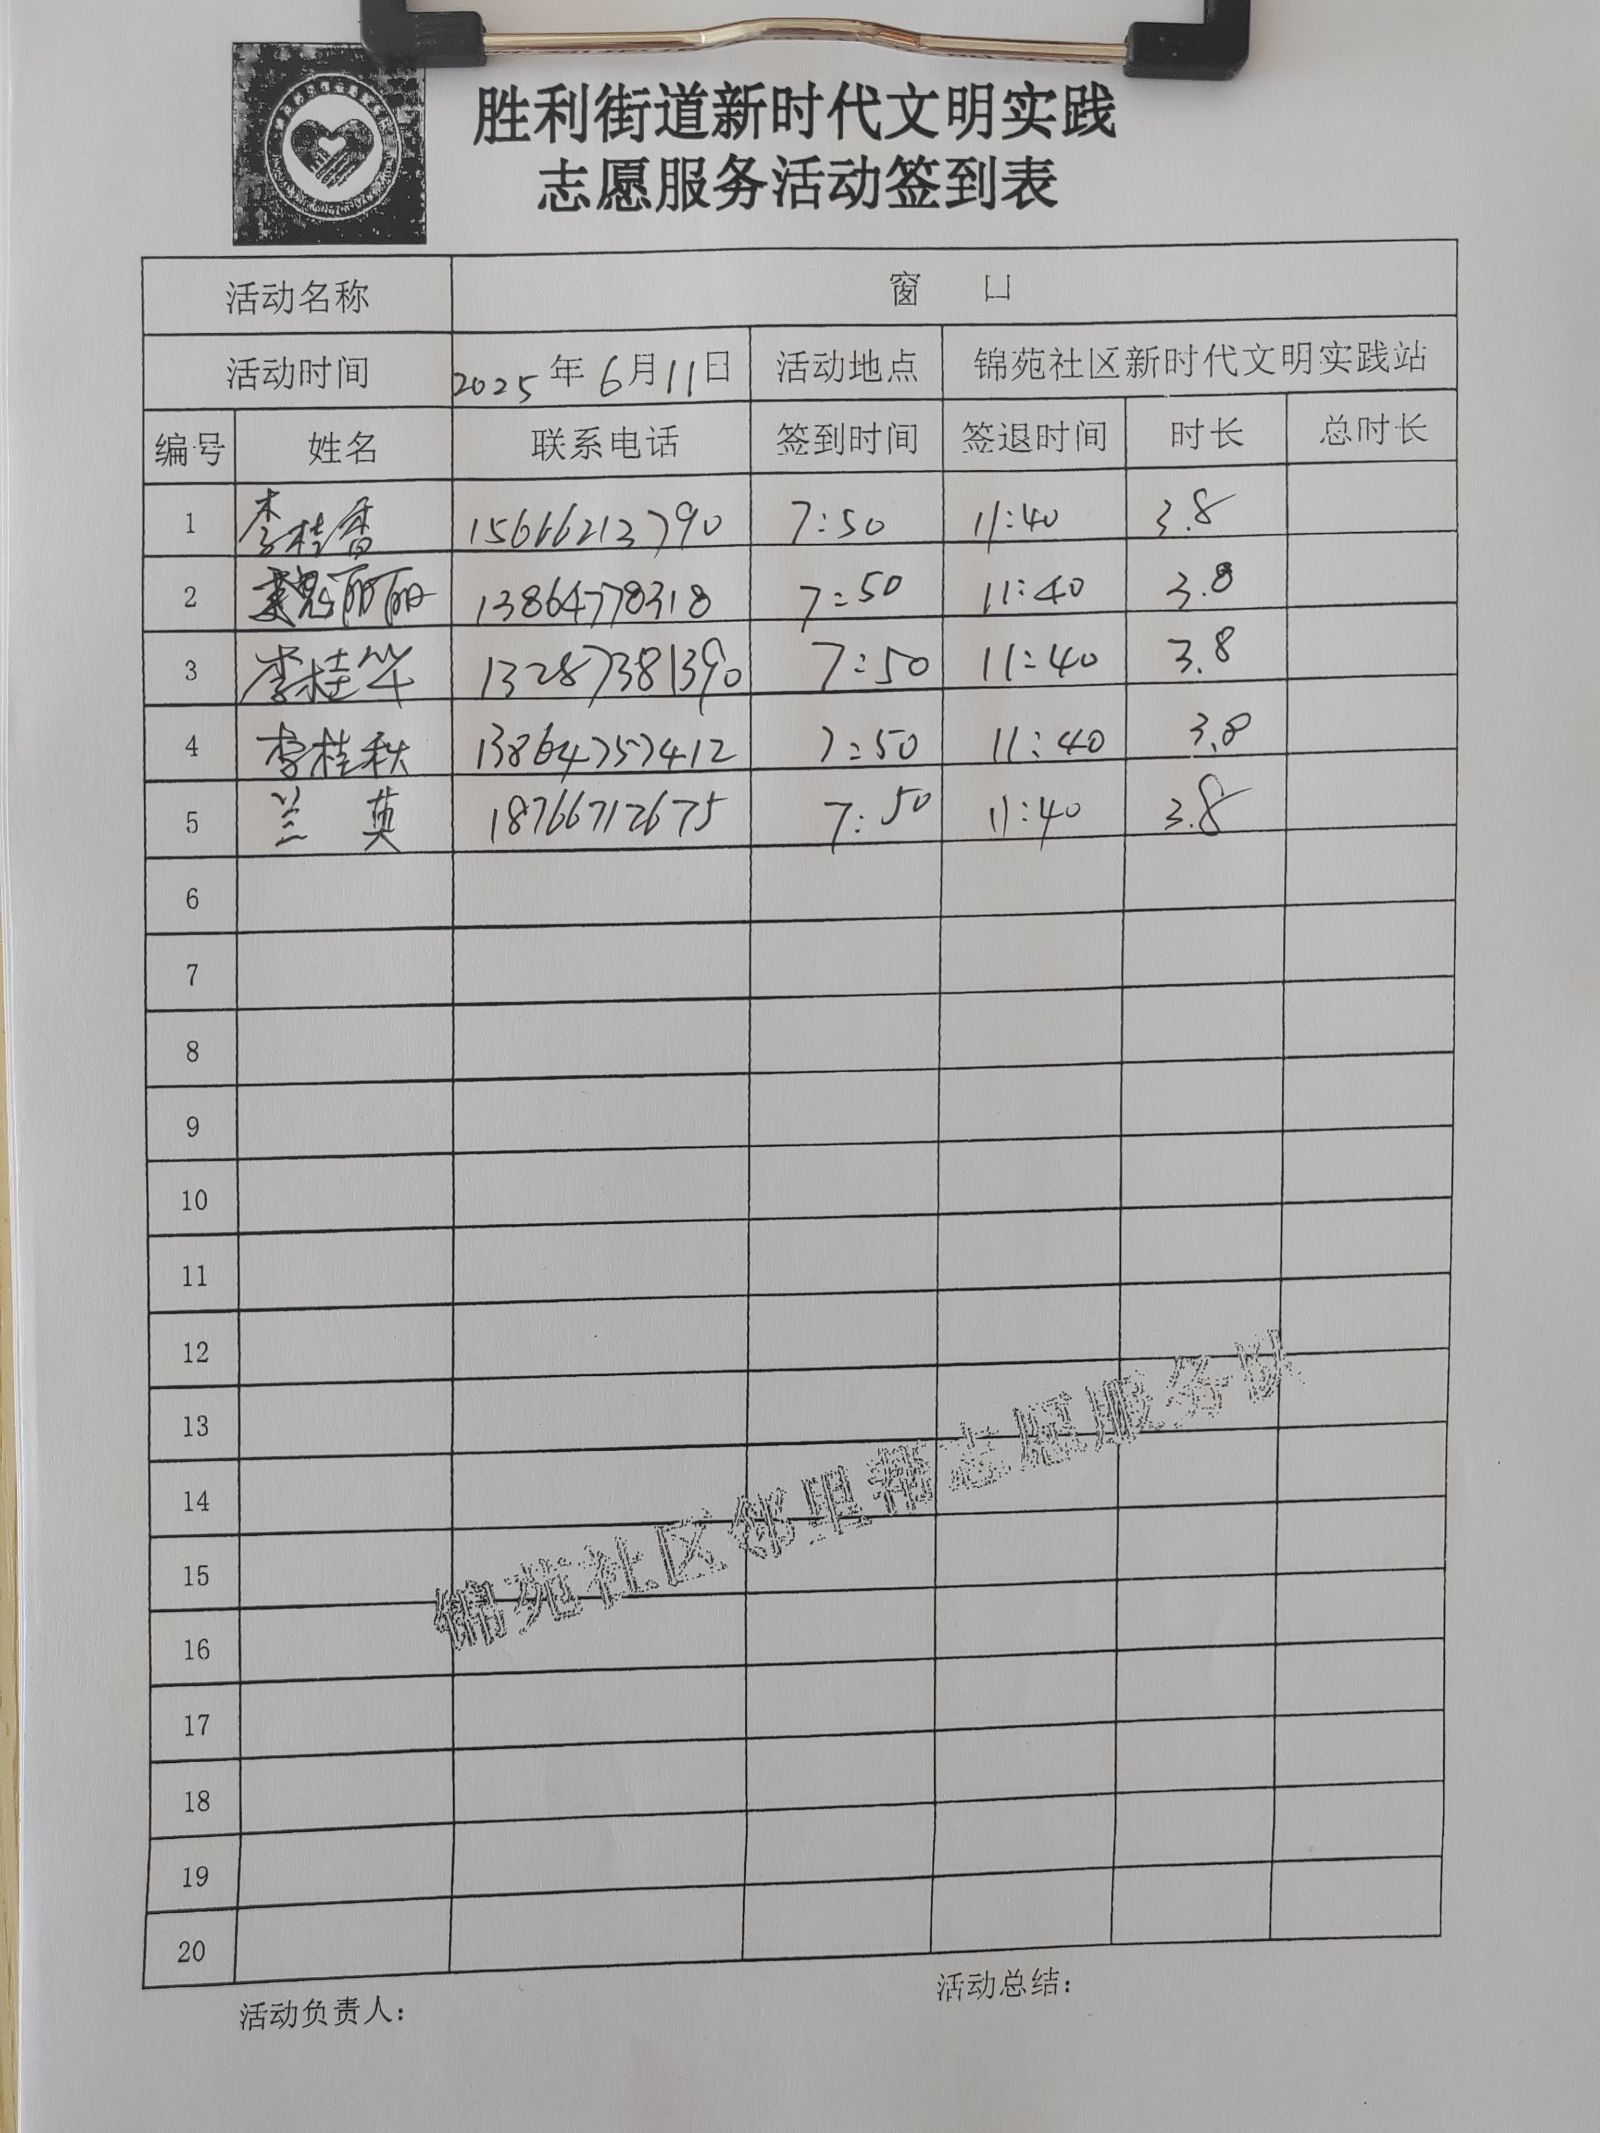 胜利街道新时代文明实践
志愿服务活动签到表
活动名称 窗 口
活动时间 2025年6月11日 活动地点 锦苑社区新时代文明实践站
编号 姓名 联系电话 签到时间 签退时间 时长 总时长
1 李桂香 15666213790 7:50 11:40 3.8
2 魏丽丽 13864778318 7:50 11:40 3.8
3 李桂华 13287381390 7:50 11:40 3.8
4 李桂秋 13864757412 7:50 11:40 3.8
5 兰英 18766712675 7:50 11:40 3.8
6
7
8
9
10
11
12
13
14
15
16
17
18
19
20
锦苑社区邻里帮志愿服务队
活动负责人：
活动总结：